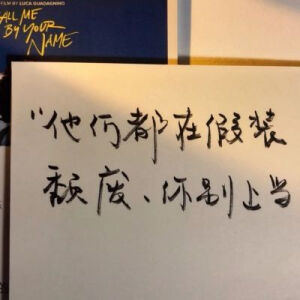 A FILM BY LUCA GUADAGNINO
CALL ME
BY YOUR
NAME
"他们都在假装
颓废、你别上当